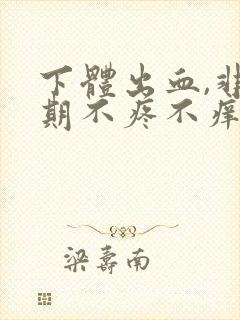 下體出血,非
期不疼不痒
梁壽南